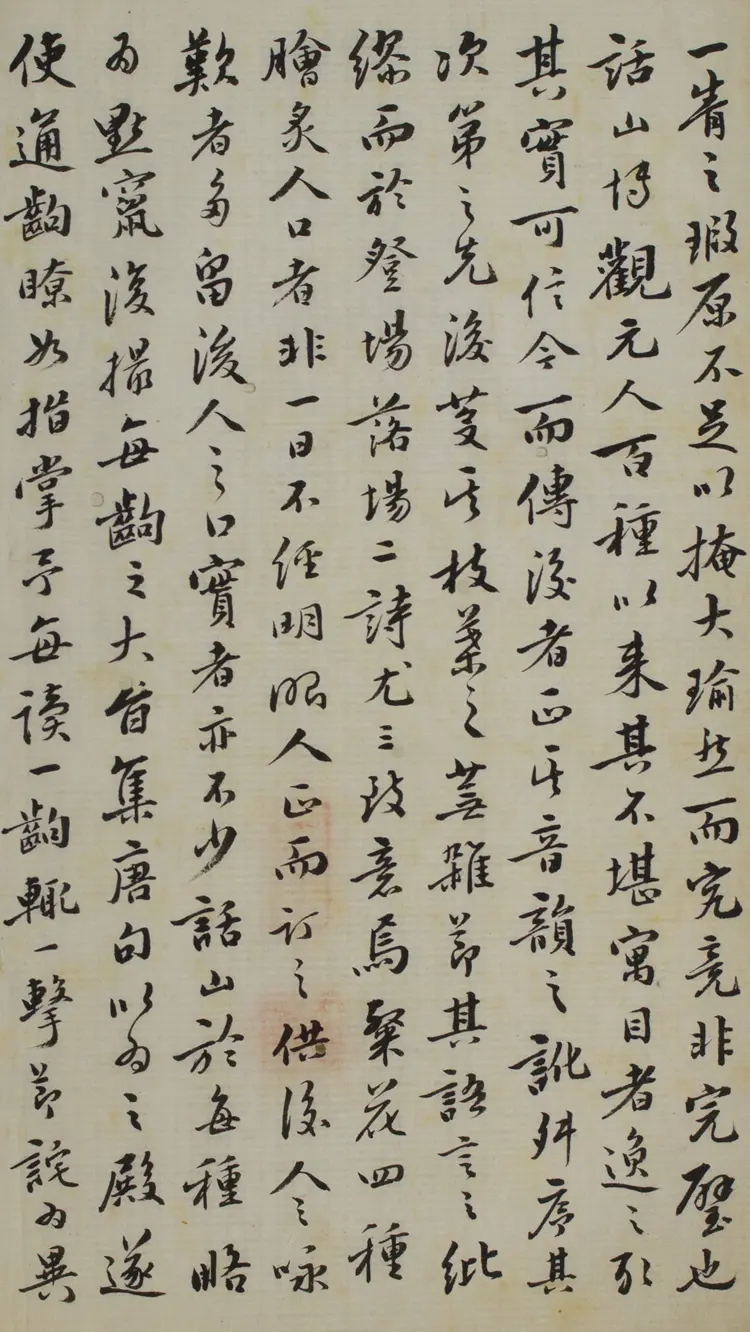 一眚之瑕原不足以掩大瑜然而究竟非完璧也
話山博觀元人百種以来其不堪寓目者逸之取
其實可信今而傳後者正其音韻之訛舛序其
次第之先後芟其枝葉之蕪雜節其語言之紕
繆而於登場落場二詩尤三致意焉粲花四種
膾炙人口者非一日不经明眼人正而訂之供後人之咏
歎者多留後人之口實者亦不少話山於每種略
为點竄後撮每齣之大旨集唐句以为之殿遂
使通齣瞭如指掌予每读一齣輒一擊节詫为異